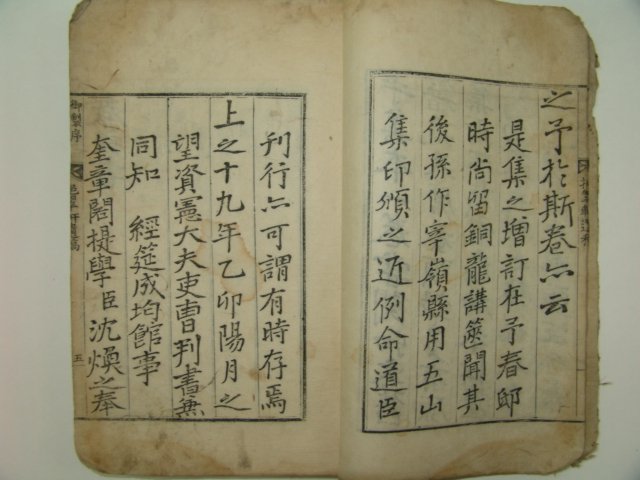 之予於斯卷亦云
是集之增訂在予春邸
時尚留銅龍講筵聞其
後孫作宰嶺縣用五山
集印頒之近例命道臣
刊行亦可謂有時存焉
上之十九年乙卯陽月之
望資憲大夫吏曹判書兼
同知 經筵成均館事
奎章閣提學臣沈煥之奉
御製序
五